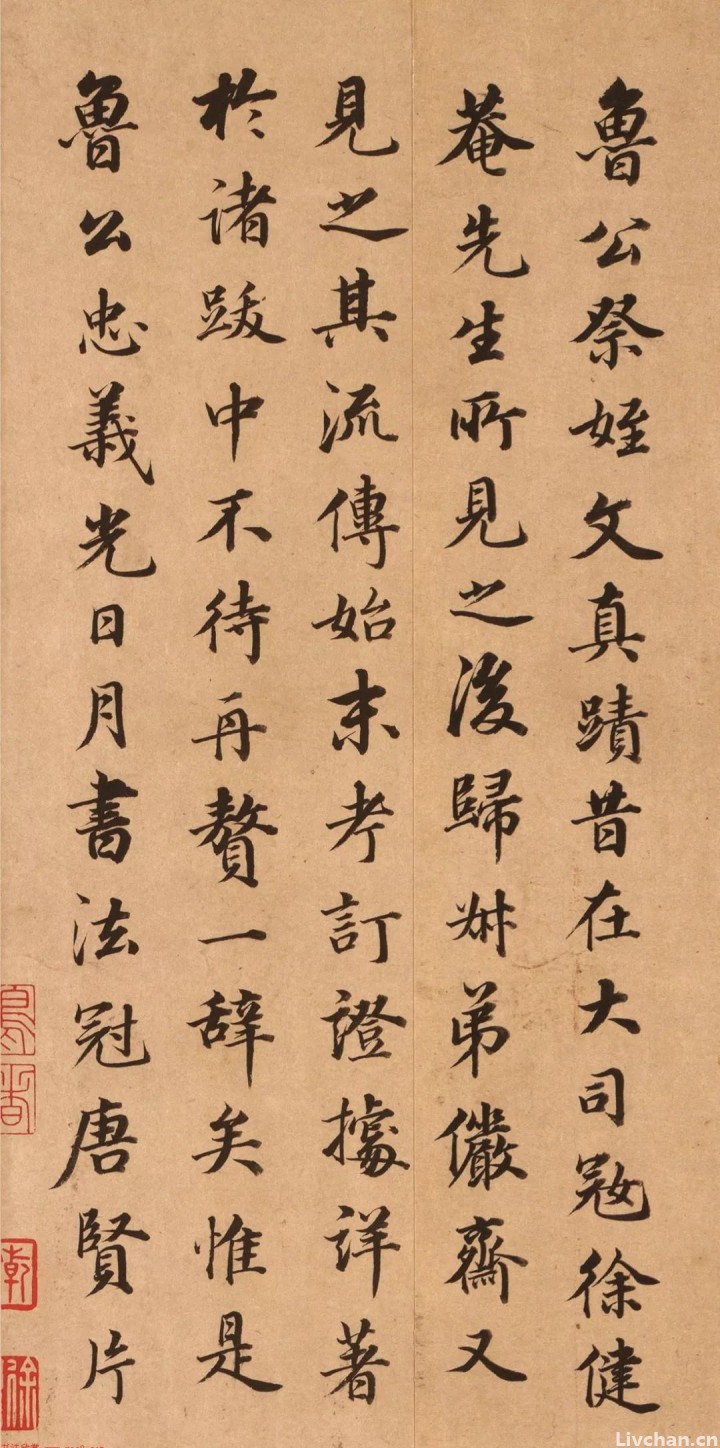 魯公祭姪文真蹟昔在大司寇徐健
菴先生所見之後歸叔弟儼齋又
見之其流傳始末考訂證據詳著
於諸跋中不待再贅一辭矣惟是
魯公忠義光日月書法冠唐賢片
Livchan.cn